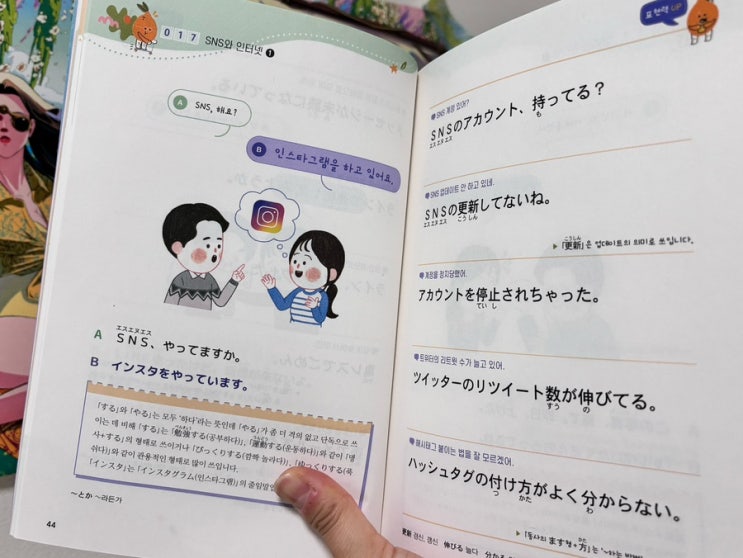 017 SNS와 인터넷 ❶
A SNS, 해요?
B 인스타그램을 하고 있어요.
エスエヌエス
A SNS、やってますか。
B インスタをやっています。
「する」와 「やる」는 모두 '하다'라는 뜻인데 「やる」가 좀 더 격의 없고 단독으로 쓰
이는 데 비해 「する」는 「勉強する(공부하다)」, 「運動する(운동하다)」와 같이 '명
사+する'의 형태로 쓰이거나 「びっくりする(깜짝 놀라다)」,
쉬다)」와 같이 관용적인 형태로 많이 쓰입니다.
「インスタ」는 「インスタグラム(인스타그램)」의 준말
～とか ～라든가
44
표현력 UP
SNS 계정 있어?
SNSのアカウント、持ってる？
エスエヌエス も
SNS 업데이트 안 하고 있네.
SNSの更新してないね。
エスエヌエス こうしん
▶「更新」은 업데이트의 의미로 쓰입니다.
계정을 정지당했어.
アカウントを停止されちゃった。
ていし
트위터의 리트윗 수가 늘고 있어.
ツイッターのリツイート数が伸びてる。
すう の
해시태그 붙이는 법을 잘 모르겠어.
ハッシュタグの付け方がよく分からない。
つ かた わ
更新 경신, 갱신 伸びる 늘다